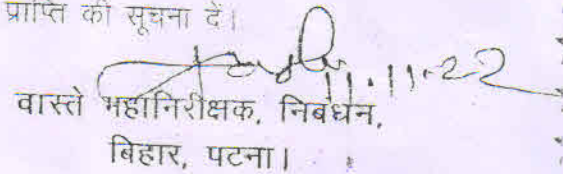 प्राप्ति की सूचना दें।
11.11.22
वास्ते महानिरीक्षक, निबंधन,
बिहार, पटना।